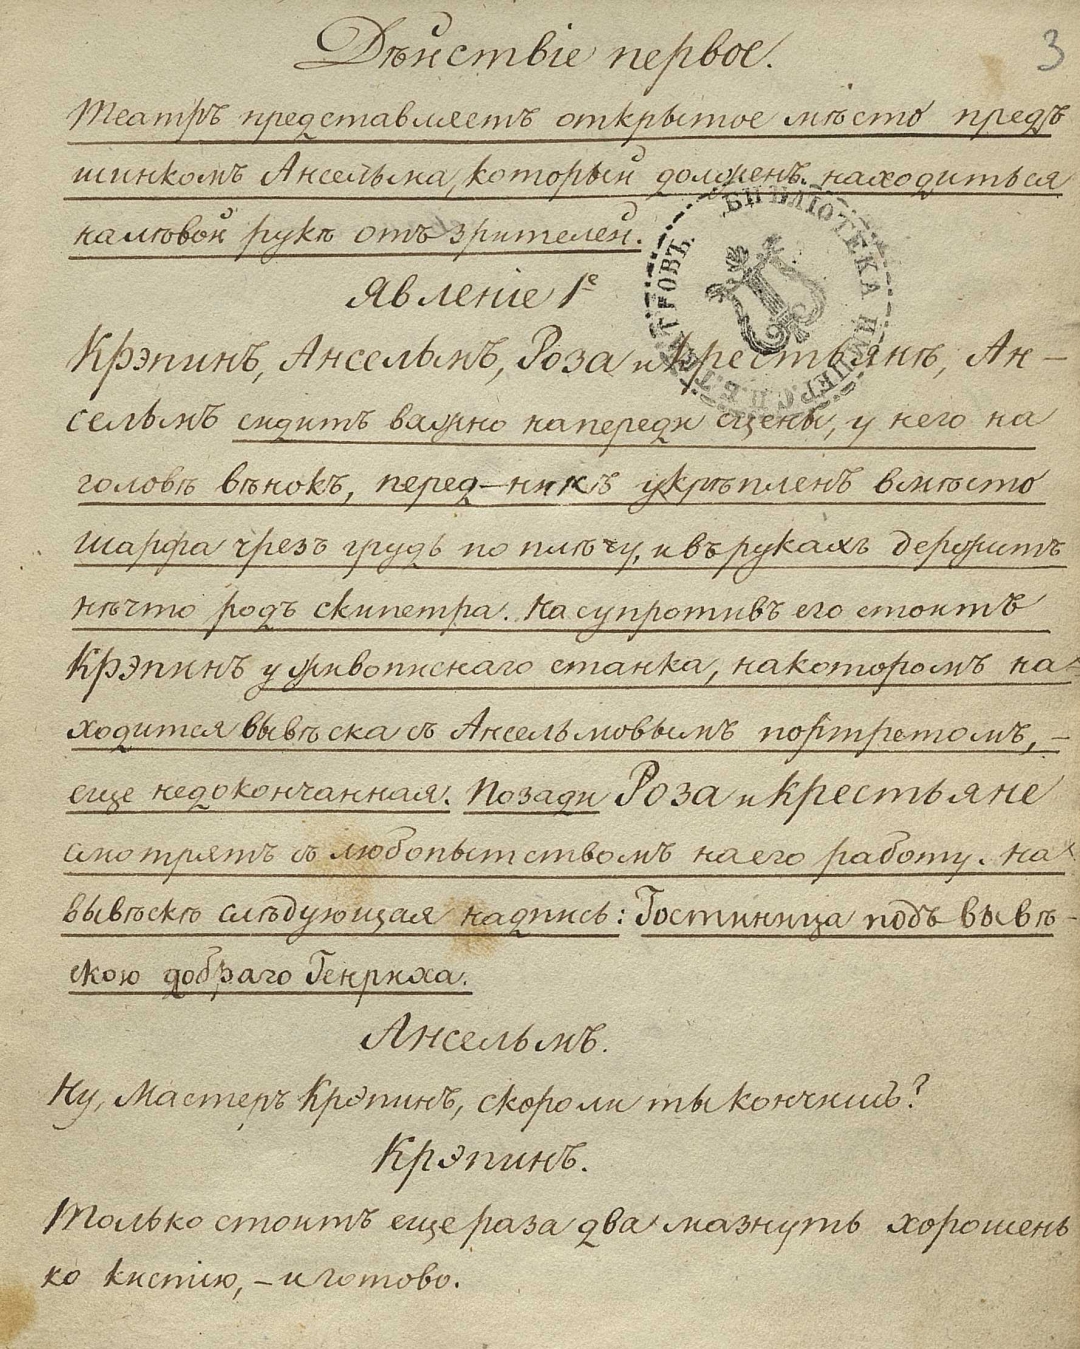 Дѣйствіе первое.
3
Театръ представляетъ открытое мѣсто предъ
шинкомъ Ансельма, который долженъ находиться
налѣвой рукѣ отъ зрителей.
БИБЛІОТЕКА ИМПЕР. С.П.Б. ТЕАТРОВЪ.
Явленіе 1е
Крэпинъ, Ансельмъ, Роза и Крестьянѣ, Ан-
сельмъ сидитъ важно напереди сцены, у него на
головѣ вѣнокъ, перед-никъ укрѣпленъ вмѣсто
шарфа чрезъ грудь по плѣчу, и въ рукахъ держитъ
нѣчто родъ скипетра. Насупротивъ его стоитъ
Крэпинъ у живописнаго станка, накоторомъ на-
ходится вывѣска съ Ансельмовымъ портретомъ, -
еще недоконченная. Позади Роза и крестьяне
смотрятъ съ любопытствомъ на его работу. На
вывѣскѣ слѣдующая надпись: Гостинница подъ вывѣ-
скою добраго Генриха.
Ансельмъ.
Ну, Мастеръ Крэпинъ, скороли ты кончишь?
Крэпинъ.
Только стоитъ еще раза два мазнуть хорошень
ко кистію, - и готово.